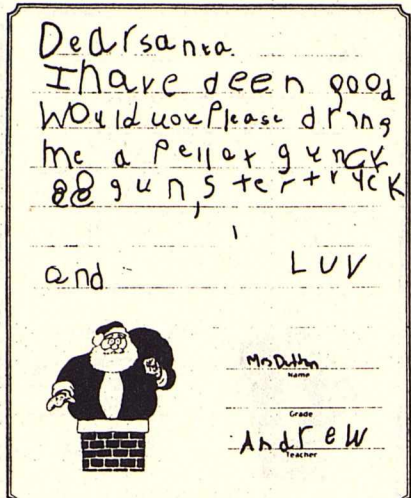 Dearsanta.
I have deen good
Would uou Please dring
me a Pellat gun or
BB gun, stertruck
and LUV
Mrs Dutton
Name
Grade
Andrew
Teacher